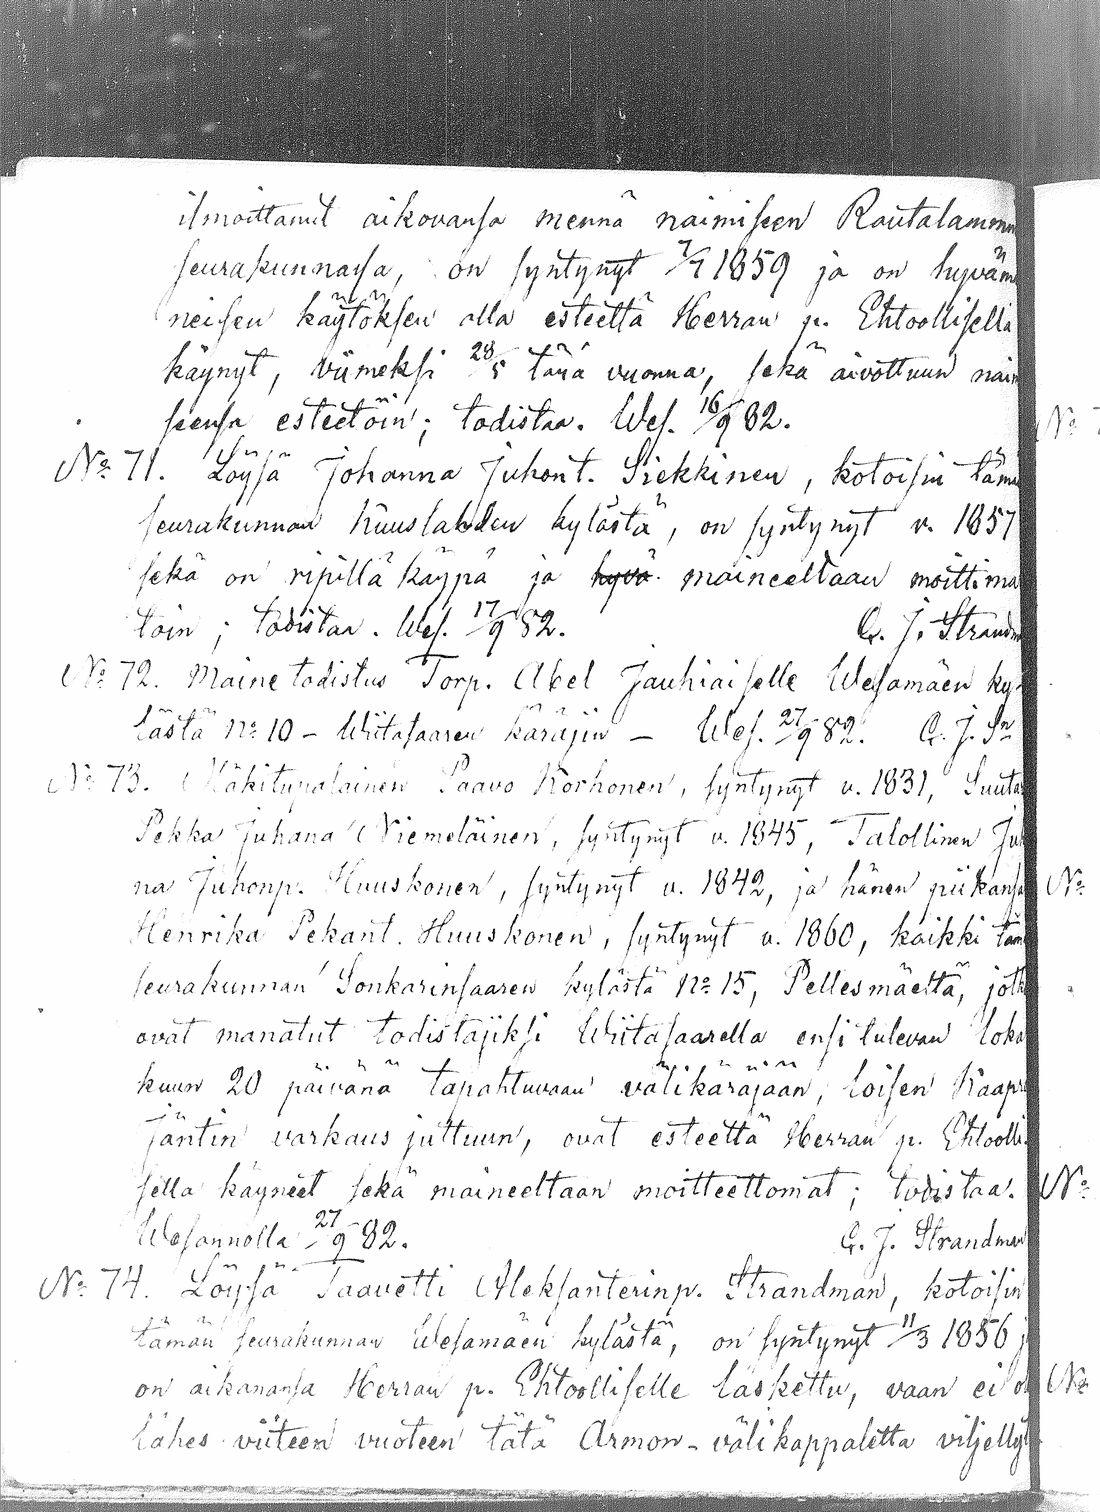 ilmoittanut aikovansa mennä naimiseen Rautalammin
seurakunnassa, on syntynyt 7/7 1859 ja on hyvän
neisen käytöksen alla esteettä Herran p. Ehtoollisella
käynyt, viimeksi 28/5 tänä vuonna, sekä aivottuun naim
seensa esteetöin; todistaa. Wes. 16/9 82.
No 71. Löysä Johanna Juhont. Siekkinen, kotoisin tämän
seurakunnan kylästä, on syntynyt v. 1857
sekä on ripillä käypä ja hyvä maineeltaan moittima
toin; todistaa. Wes. 17/9 82. G. J. Strandm
No 72. Mainetodistus Torp. Abel Jauhiaiselle Wesamäen ky-
lästä No 10 – Wiitasaaren käräjiin – Wes. 27/9 82. G. J. Sn
No 73. Mäkitupalainen Paavo Korhonen, syntynyt v. 1831, Suutar
Pekka Juhana Niemeläinen, syntynyt v. 1845, Talollinen Juh
na Juhonp. Huuskonen, syntynyt v. 1842, ja hänen piikansa
Henrika Pekant. Huuskonen, syntynyt v. 1860, kaikki täm
seurakunnan Sonkarinsaaren kylästä No 15, Pellesmäeltä, jotk
ovat manatut todistajiksi Wiitasaarella ensi tulevan loka
kuun 20 päivänä tapahtuvaan välikäräjään, loisen Kaapro
Jäntin varkaus juttuun, ovat esteettä Herran p. Ehtoolli-
sella käyneet sekä maineeltaan moitteettomat; todistaa. No
Wesannolla 27/9 82. G. J. Strandman
No 74. Löysä Taavetti Aleksanterinp. Strandman, kotoisin
tämän seurakunnan Wesamäen kylästä, on syntynyt 11/3 1856 j
on aikanansa Herran p. Ehtoolliselle laskettu, vaan ei ol
lähes viiteen vuoteen tätä Armon-välikappaletta viljellyt